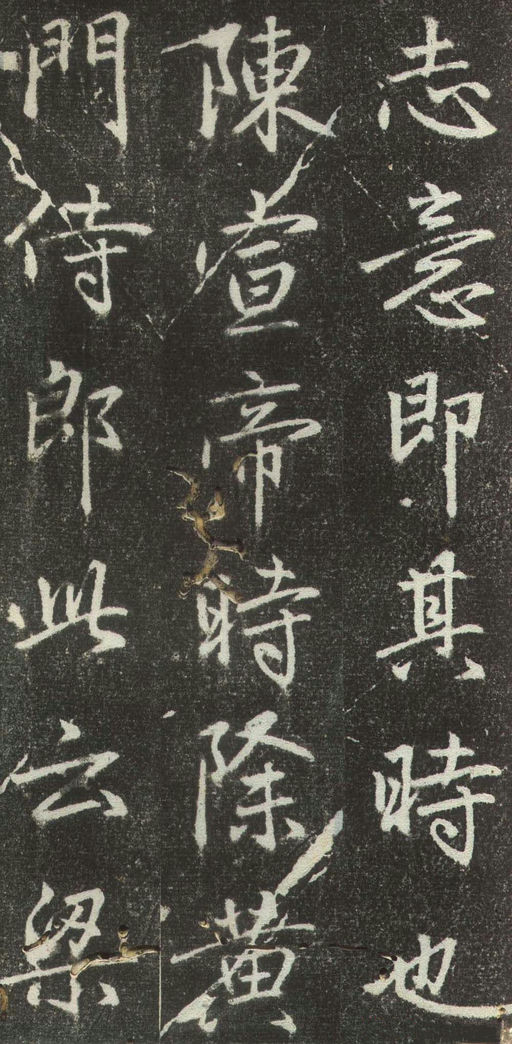 志意即其時也
陳宣帝時除黃
門侍郎此云梁